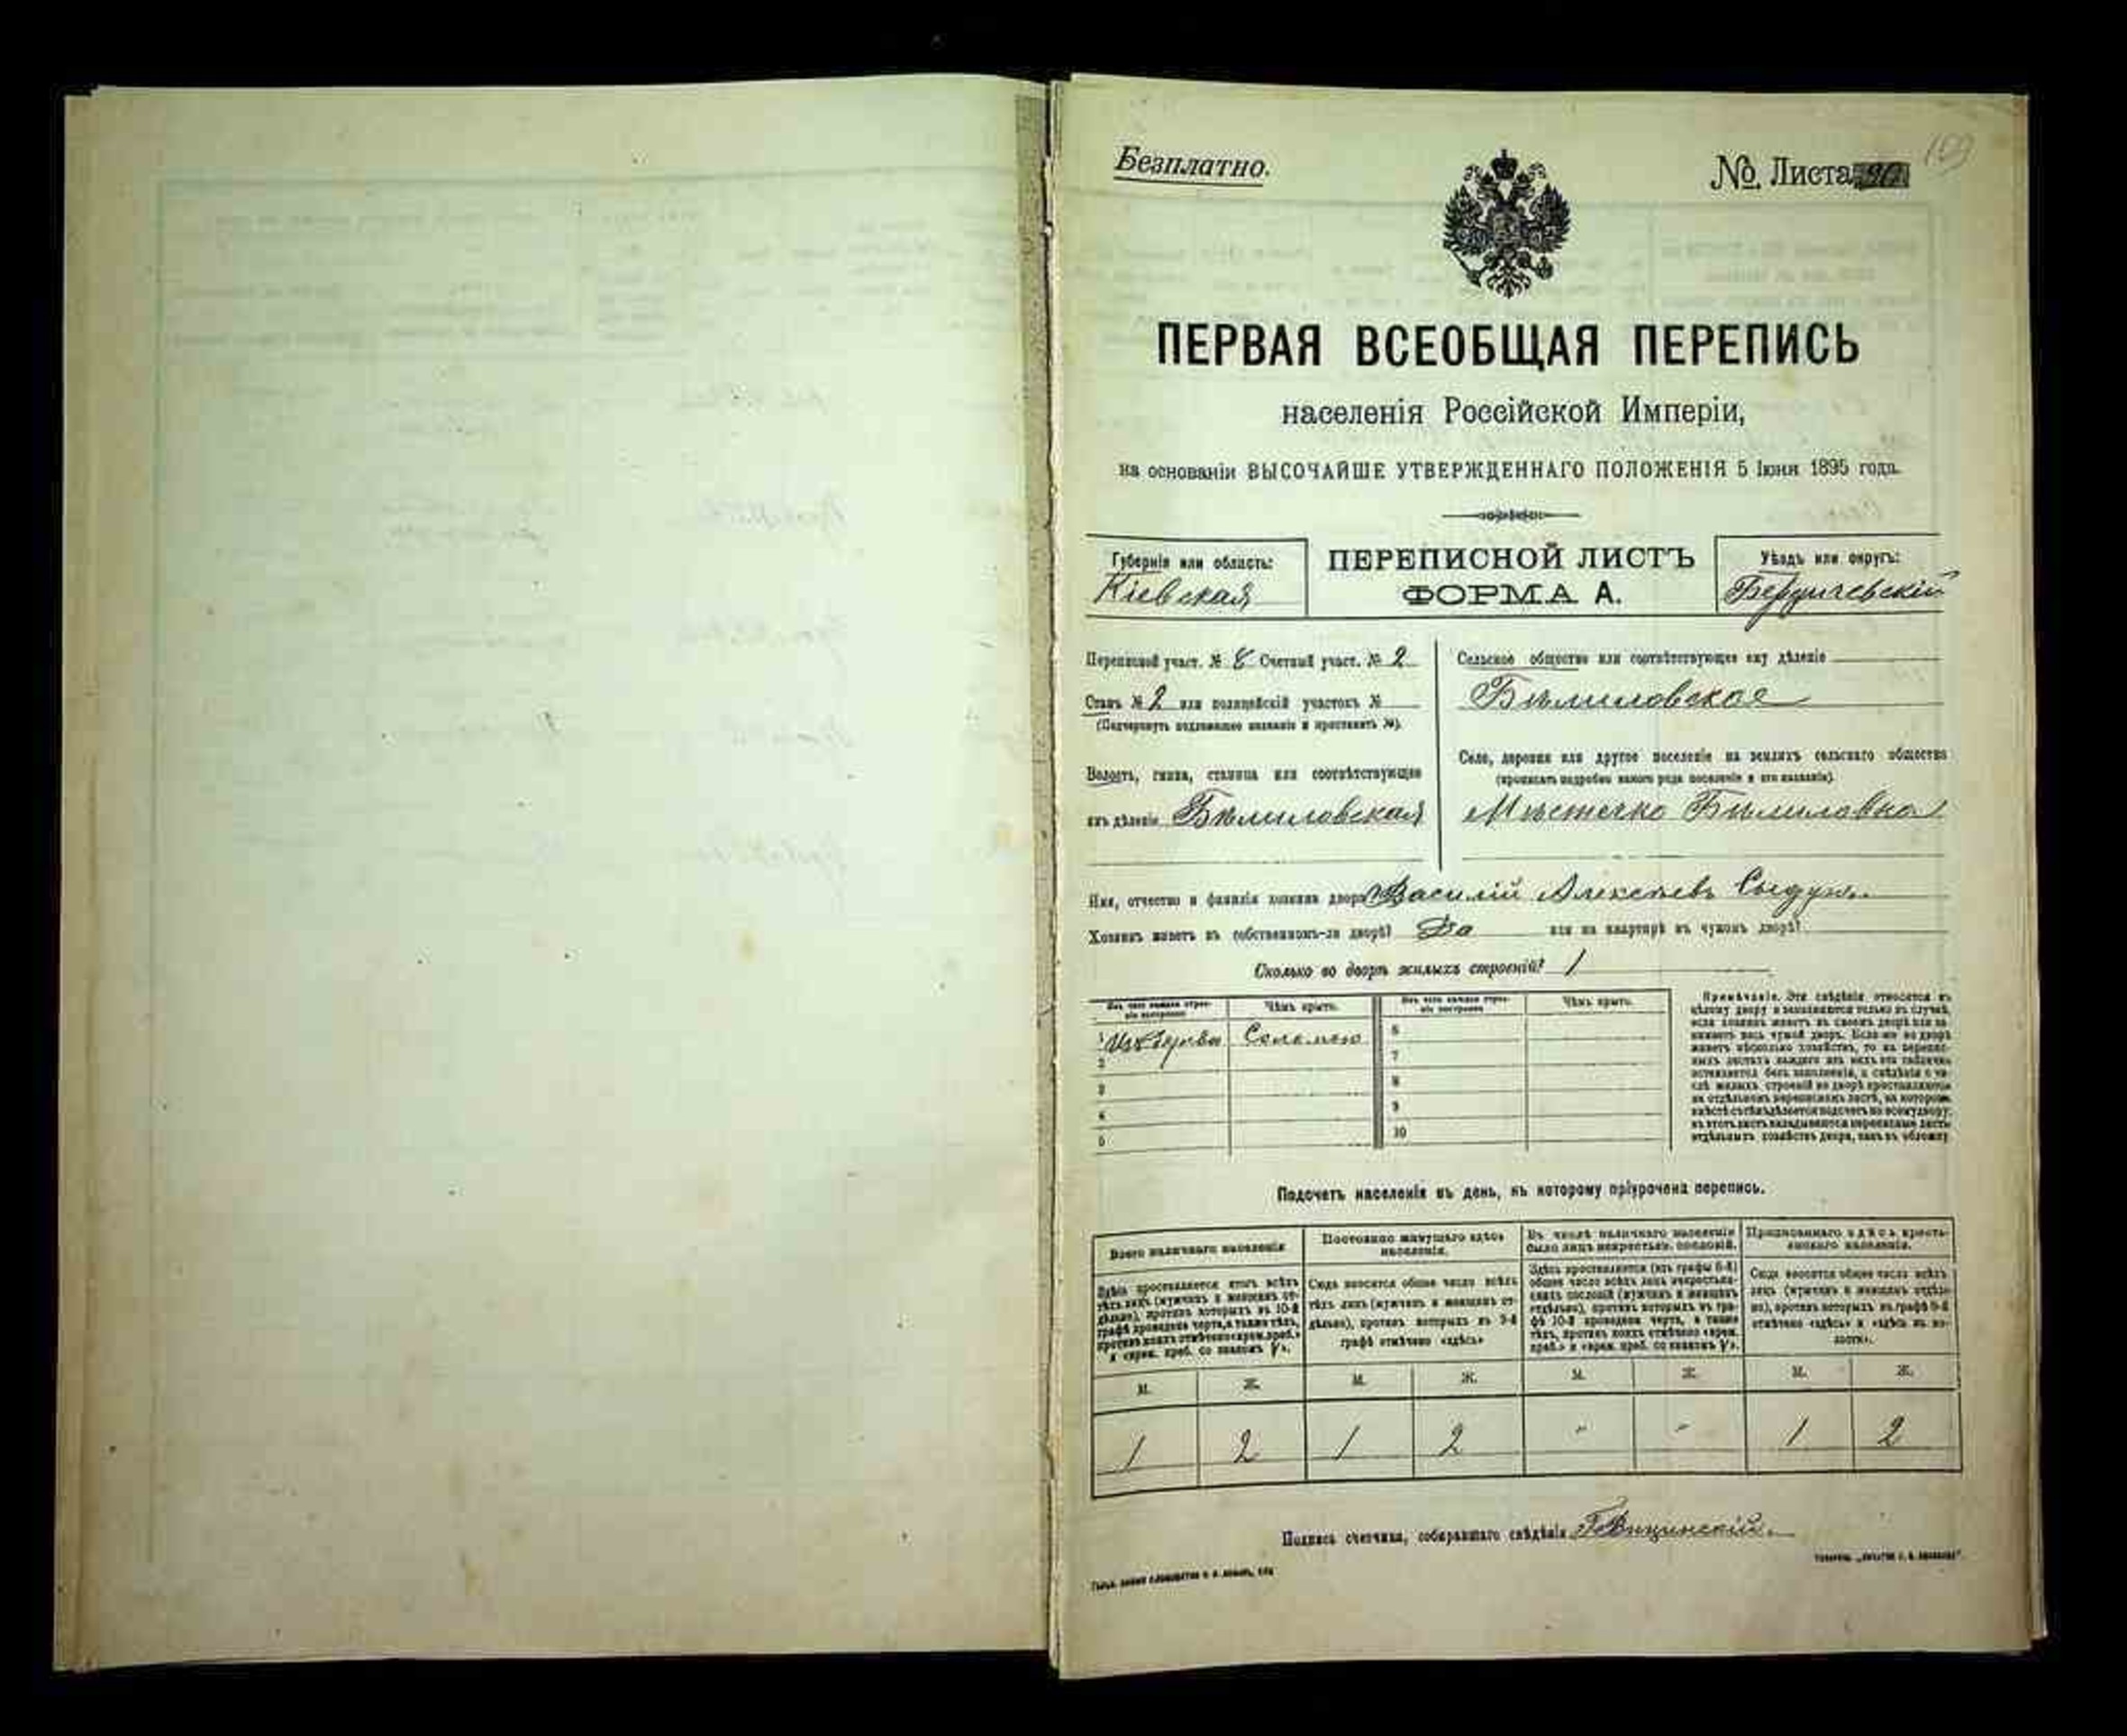 Безплатно.
No. Листа 20
ПЕРВАЯ ВСЕОБЩАЯ ПЕРЕПИСЬ
населенія Россійской Имперіи,
на основаніи ВЫСОЧАЙШЕ УТВЕРЖДЕННАГО ПОЛОЖЕНІЯ 5 Іюня 1895 года.
Губернія или область:
Кіевская
ПЕРЕПИСНОЙ ЛИСТЪ
ФОРМА А.
Уѣздъ или округъ:
Бердичевскій
Переписной участ. № 8 Счетный участ. № 2
Станъ № 2 или полицейскій участокъ №
(Подчеркнуть подлежащее названіе и проставить №).
Волость, гмина, станица или соотвѣтствующее
имъ дѣленіе Бѣлиловская
Сельское общество или соотвѣтствующее ему дѣленіе
Бѣлиловское
Село, деревня или другое поселеніе на земляхъ сельскаго общества
(прописать подробно какого рода поселеніе и его названіе).
Мѣстечко Бѣлиловка
Имя, отчество и фамилія хозяина двора Василій Алексѣевъ
Хозяинъ живетъ въ собственномъ-ли дворѣ? Да или на квартирѣ въ чужомъ дворѣ?
Сколько во дворѣ жилыхъ строеній? 1
Изъ чего каждое строеніе построено
Чѣмъ крыто.
Изъ чего каждое строеніе построено
Чѣмъ крыто.
1 Изъ дерева Соломою
2
3
4
5
6
7
8
9
10
Примѣчаніе. Эти свѣдѣнія относятся къ
цѣлому двору и заполняются только въ случаѣ,
если хозяинъ живетъ въ своемъ дворѣ или занимаетъ
весь чужой дворъ. Если-же во дворѣ
живетъ нѣсколько хозяйствъ, то на переписныхъ
листахъ каждаго изъ нихъ эта табличка
оставляется безъ заполненія, а свѣдѣнія о числѣ
жилыхъ строеній во дворѣ проставляются
на отдѣльномъ переписномъ листѣ, на которомъ
вмѣстѣ съ тѣмъ дѣлается подсчетъ по всему двору;
въ этотъ листъ вкладываются переписные листы
отдѣльныхъ хозяйствъ двора, какъ въ обложку.
Подсчетъ населенія въ день, къ которому пріурочена перепись.
Всего наличнаго населенія
Здѣсь проставляется итогъ всѣхъ
тѣхъ лицъ (мужчинъ и женщинъ отдѣльно),
противъ которыхъ въ 10-й
графѣ проведена черта, а также тѣхъ,
противъ коихъ отмѣчено «врем. преб.»
и «врем. преб. со знакомъ V».
Постоянно живущаго здѣсь
населенія.
Сюда вносится общее число всѣхъ
тѣхъ лицъ (мужчинъ и женщинъ отдѣльно),
противъ которыхъ въ 9-й
графѣ отмѣчено «здѣсь»
Въ числѣ наличнаго населенія
было лицъ некрестьян. сословій.
Здѣсь проставляется (изъ графы 6-й)
общее число всѣхъ лицъ некрестьянскихъ
сословій (мужчинъ и женщинъ
отдѣльно), противъ которыхъ въ графѣ
10-й проведена черта, а также
тѣхъ, противъ коихъ отмѣчено «врем.
преб.» и «врем. преб. со знакомъ V».
Приписаннаго здѣсь крестьянскаго
населенія.
Сюда вносится общее число всѣхъ
лицъ (мужчинъ и женщинъ отдѣльно),
противъ которыхъ въ графѣ 8-й
отмѣчено «здѣсь» и «здѣсь въ волости».
М. Ж. М. Ж. М. Ж. М. Ж.
1 2 1 2 " " 1 2
Подпись счетчика, собиравшаго свѣдѣнія